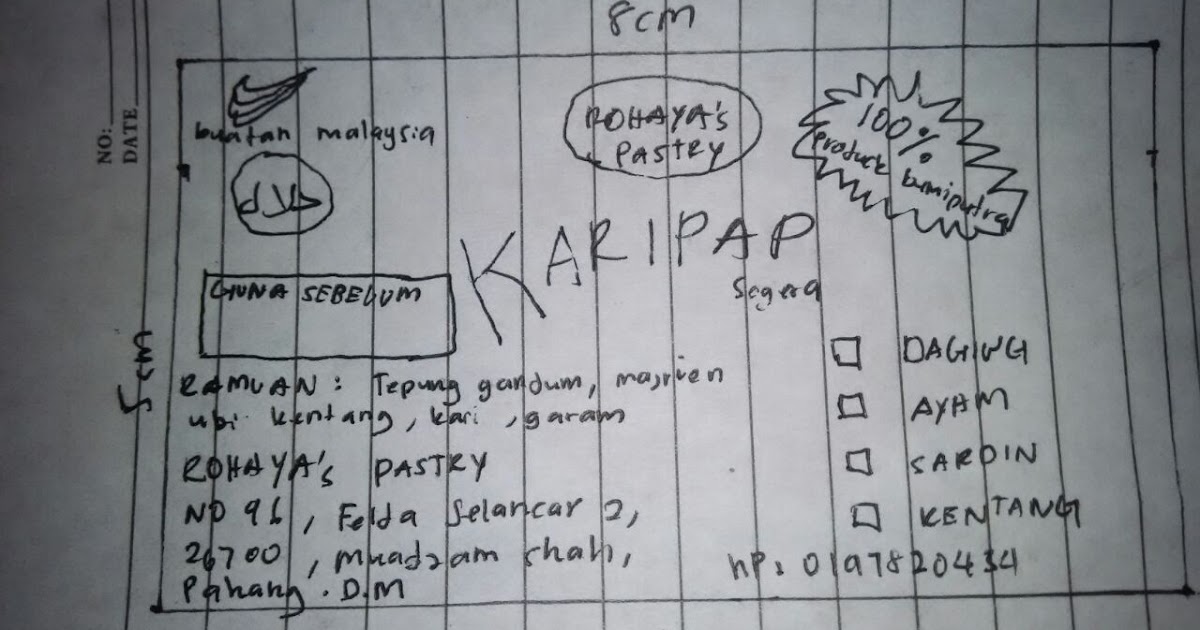 8cm
NO:
DATE
buatan malaysia
حلال
ROHAYA's
PASTRY
100%
product bumiputra
KARIPAP
segera
GUNA SEBELUM
5cm
RAMUAN: Tepung gandum, majrien
ubi kentang, kari, garam
ROHAYA's PASTRY
NO 96, Felda Selancar 2,
26700, muadzam shah,
Pahang. D.M
DAGING
AYAM
SARDIN
KENTANG
HP: 0197820434